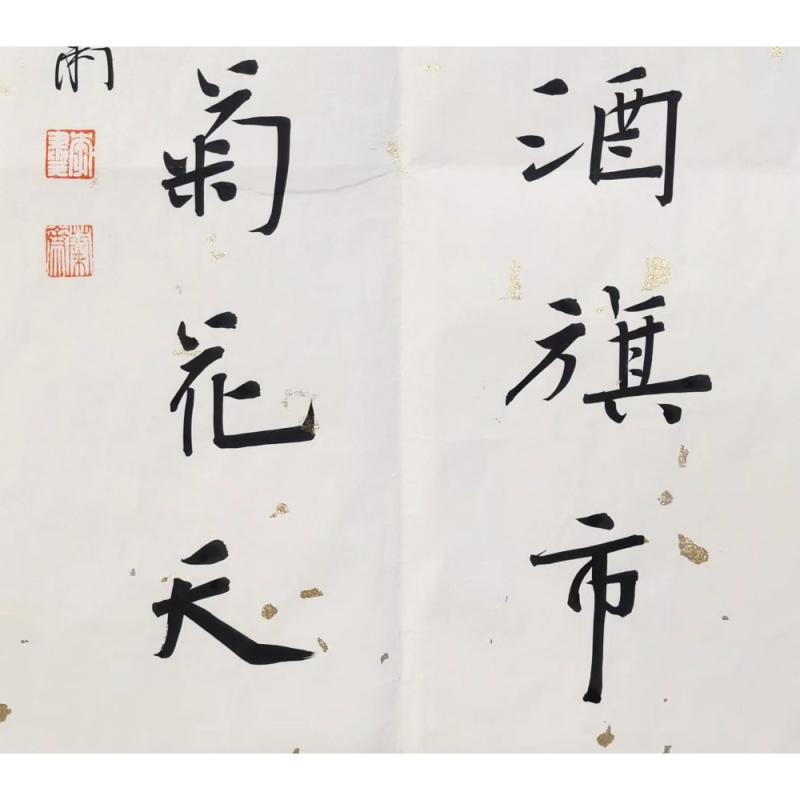 酒旗市
菊花天